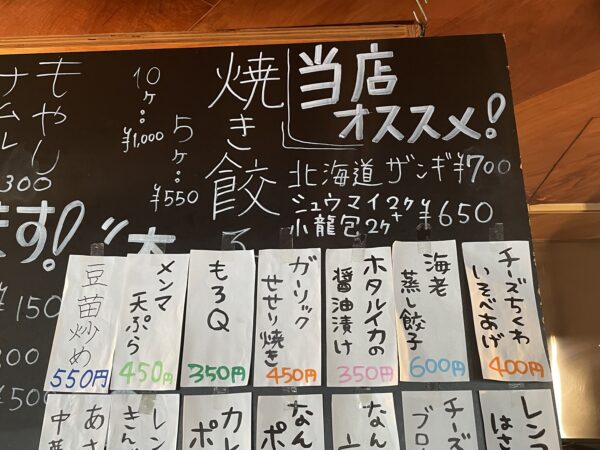 当店
オススメ!
北海道 ザンギ ¥700
シュウマイ2ケ+
小龍包2ケ
¥650
焼き餃
10ケ:
¥1,000
5ケ:
¥550
もやし
ナムル
300
ます!
¥150
300
¥500
チーズちくわ
いそべあげ
400円
海老
蒸し餃子
600円
ホタルイカの
醤油漬け
350円
ガーリック
せせり焼き
450円
もろQ
350円
メンマ
天ぷら
450円
豆苗炒め
550円
レンコ
はさ
チーズ
ブロ
なん
なん
ポ
カレ
ポ
レン
きん
あさ
中華